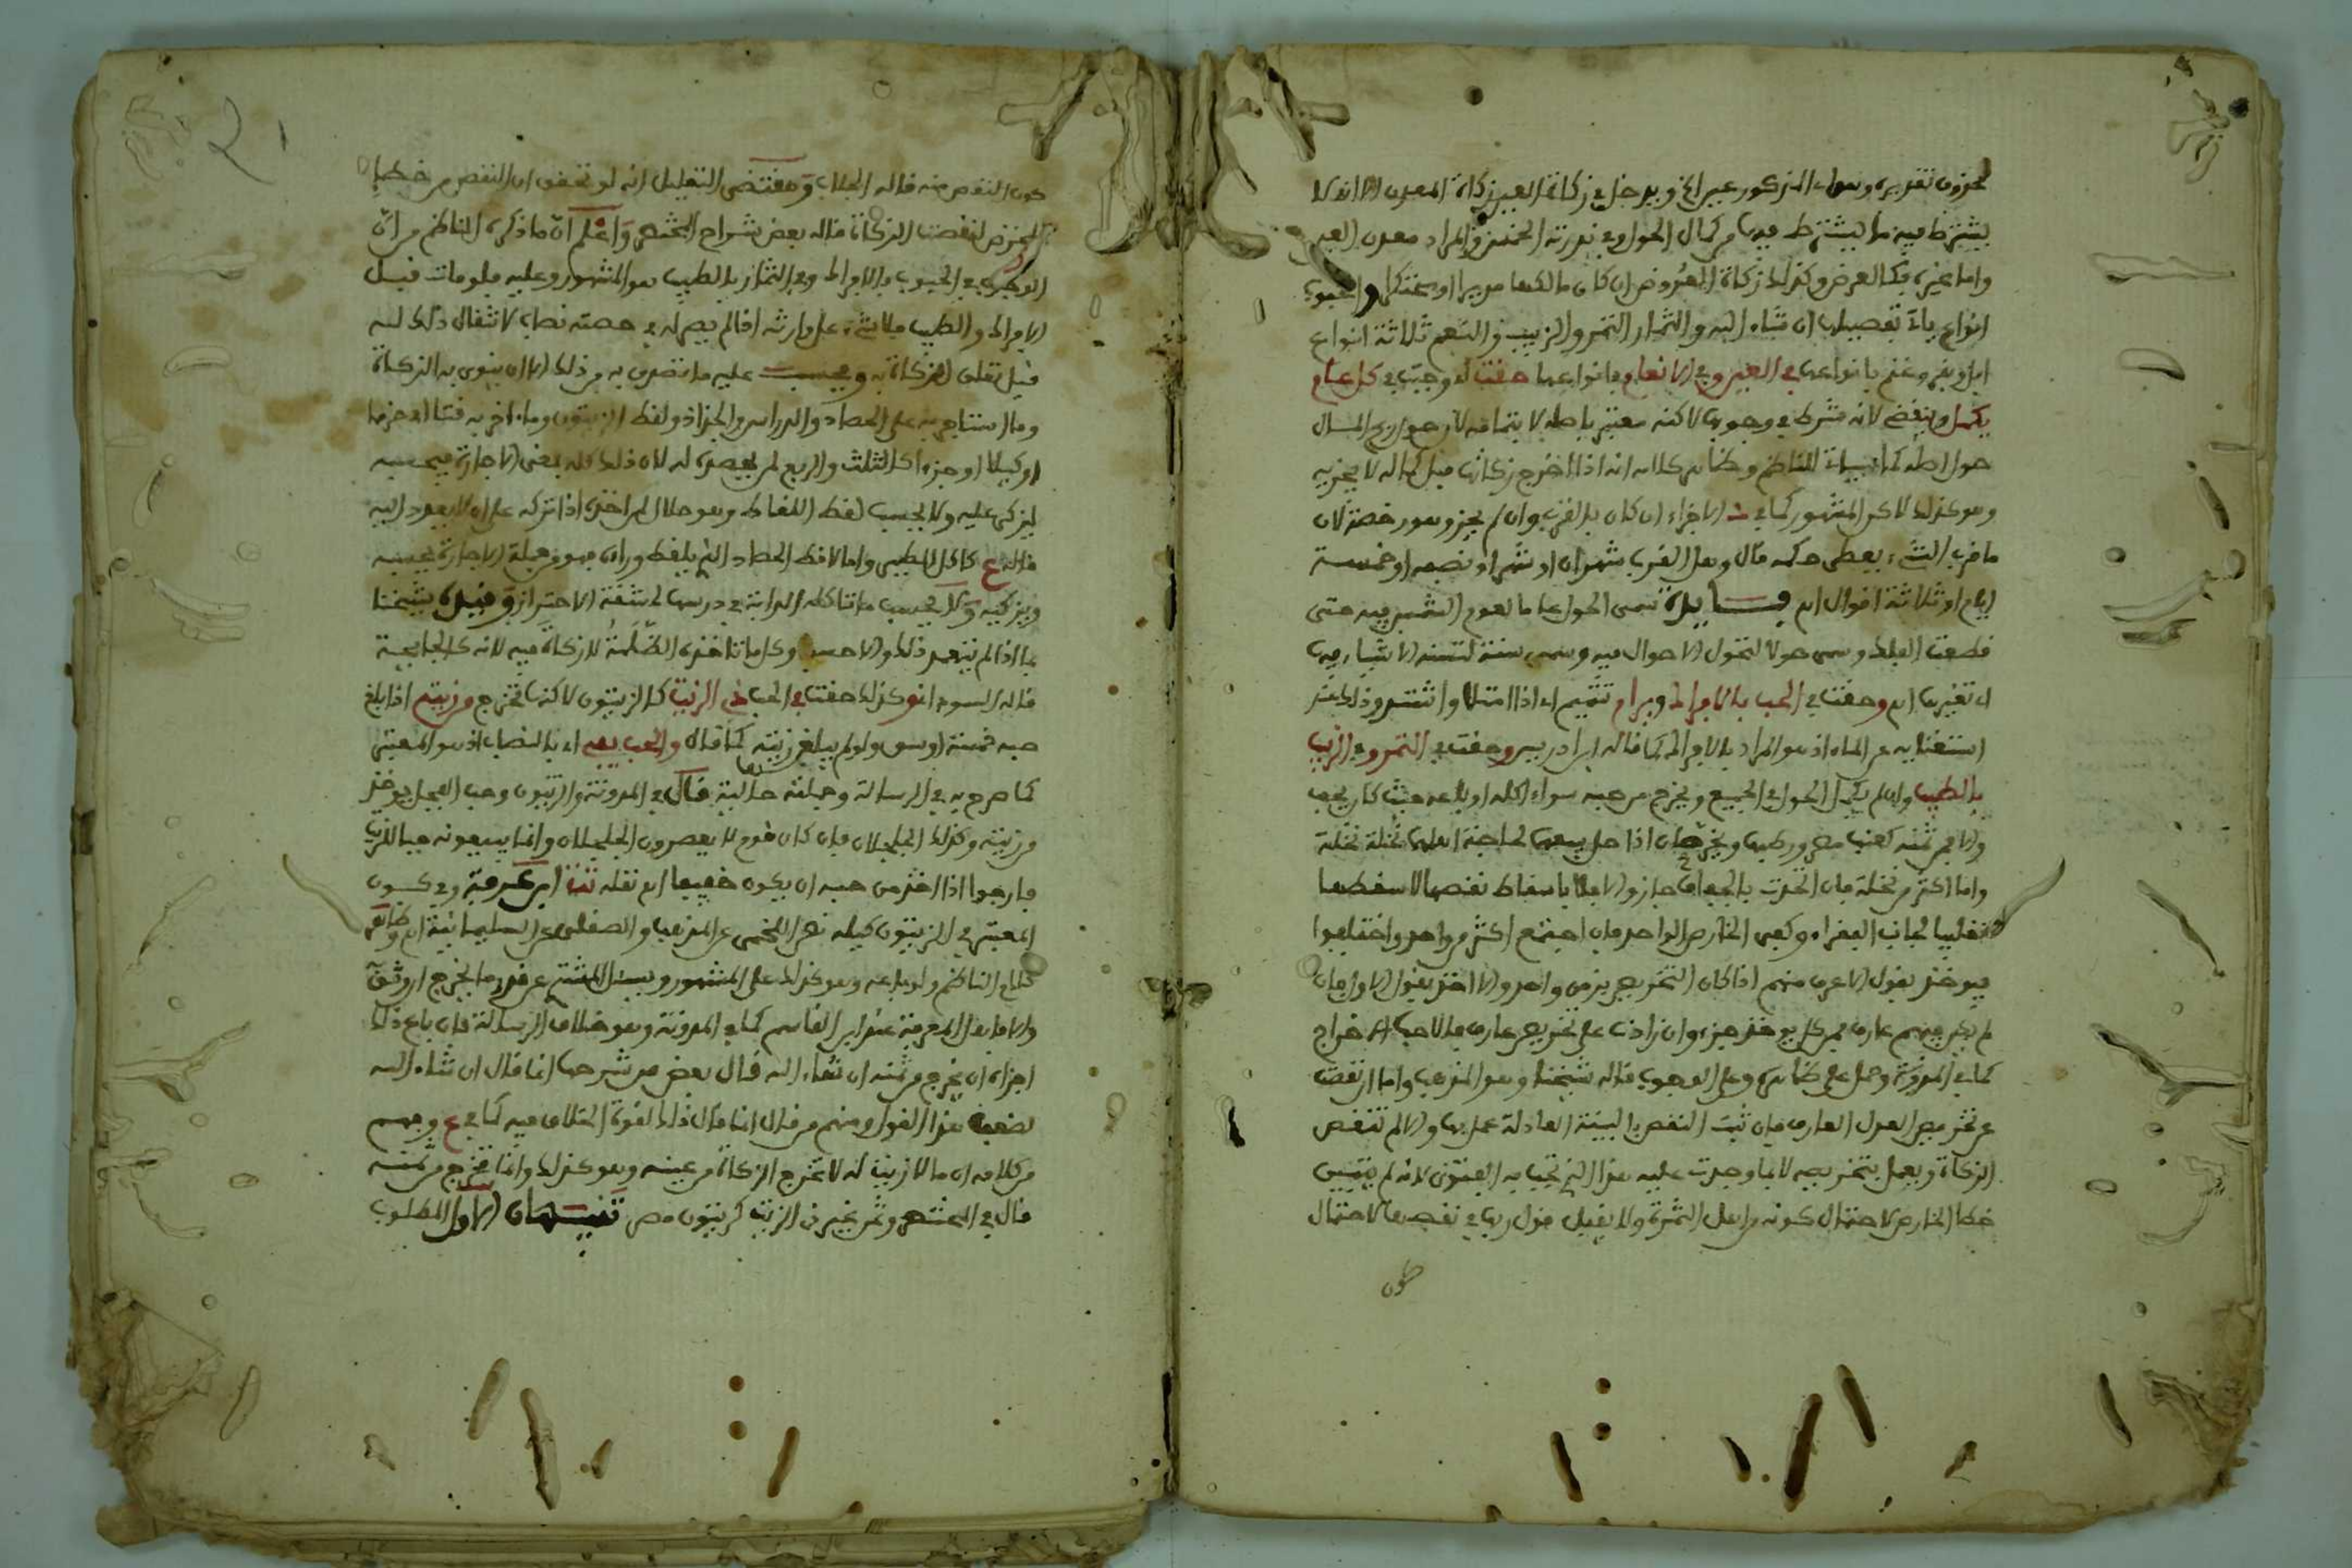 محذوف تقديره وسواء المذكور عبر الخ ويدخل في زكاة العين زكاة المعدن الا انه لا
يشترط فيه ما يشترط فيها من كمال الحول وفي ندرته الخمس والمراد معدن العين
واما غيره فكالعرض وكذلك زكاة العروض ان كان مالكها مديرا او محتكرا والحبوب
انواع ياتي تفصيلها ان شاء الله والثمار التمر والزبيب والنعم ثلاثة انواع
ابل وبقر وغنم بانواعها في العين وفي الانعام بانواعها حقت اي وجبت في كل عام
يكمل وينقضي لانه شرط في وجوبها لاكنه معتبر باصله لا بتمامه لان حول ربح المال
حول اصله كما للناظم وظاهر كلامه انه اذا اخرج زكاتها قبل كماله لا يجزيه
وهو كذلك لاكن المشهور كما في الاجزاء ان كان بالقرب وان لم يجز وهو رخصة لان
ما قرب الشيء يعطى حكمه قال وهل القرب شهران او شهر او نصفه او خمسة
ايام او ثلاثة اقوال اهـ فــايدة سمى الحول عاما لعوم الشمس فيه حتى
قطعت الفلك وسمى حولا لتحول الاحوال فيه وسمى سنة لتسنه الاشياء فيه
اي تغيرها اهـ وحقت في الحب بالافراك ويرام تتميم اي اذا امتلا واشتد وذلك عند
استغنايه عن الماء اذ هو المراد بالافراك كما قاله ابن ادريس وحقت في التمر وفي الزبيب
بالطيب وان لم يكمل الحول في الجميع ويخرج من حبه سواء اكله او باعه حيث كان يجف
والا فمن ثمنه كعنب مصر ورطبها ويخرصان اذا حل بيعهما لحاجة اهلهما نخلة نخلة
واما اكثر من نخلة فان اتحدت بالجفاف جاز والا فلا باسقاط نقصها لا سقطها
تغليبا لجانب الفقراء وكفى الخارص الواحد فان اجتمع اكثر من واحد واختلفوا
فيوخذ بقول الاعرف منهم اذا كان التخريص بزمن واحد والا اخذ بقول الاول فان
لم يكن فيهم عارف فمن كل يوخذ جزء وان زادت على تخريص عارف فالاحب الاخراج
كما في المدونة وحمل على ظاهره وعلى الوجوب قاله شيخنا وهو المذهب واما ان نقصت
عن تخريص العدل العارف فان ثبت النقص بالبينة العادلة عمل بها والا لم تنقص
الزكاة ويعمل بتخريصه لا بما وجدت عليه هذا الذي تجب به الفتوى لانه لم يتبين
خطا الخارص لاحتمال كونه من اهل الثمرة ولا يقبل قول ربها في نقصها لاحتمال
كون
كون النقص منه قاله الجلاب ومقتضى التعليل انه لو تحقق ان النقص من خطا
المخرص لنقصت الزكاة قاله بعض شراح المختصر واعلم ان ما ذكره الناظم من ان
الوجوب في الحبوب بالافراك وفي الثمار بالطيب هو المشهور وعليه فلو مات قبل
الافراك والطيب فلا شيء على وارثه اذا لم يصر له في حصته نصاب لانتقال ذلك له
قبل تعلق الزكاة به ويحسب عليه ما تصدق به من ذلك الا ان ينوي به الزكاة
وما استاجر به على الحصاد والدراس والجذاذ ولقط الزيتون وما اخر به قتا او حزما
او كيلا او جزءا كالثلث والربع لم لان ذلك كله بمعنى الاجارة فيحسبه
ليزكي عليه ولا يحسب لقط اللقاط وهو حلال لمن اخذه اذا تركه على ان لا يعود اليه
قاله ع كاكل الطيس واما لاقط الحصاد الذي يلقط ورائهم فهو من جملة الاجارة يحسبه
ويزكيه ولا يحسب ما تاكله الدابة في درسها لمشقة الاحتراز وقيده شيخنا
بما اذا لم يتعمد ذلك والا حسب وكل ما تاخذه الظلمة لا زكاة فيه لانه كالجايحة
قاله وكذلك حقت في الحب ذي الزيت كالزيتون لاكنها تخرج من زيته اذا بلغ
حبه خمسة اوسق ولو لم يبلغ زيته كما قال والحب يفي اي بالنصاب اذ هو المعتبر
كما صرح به في الرسالة وجملته حالية قال في المدونة والزيتون وحب الفجل يوخذ
من زيته وكذلك الجلجلان فان كان قوم لا يعصرون الجلجلان وانما يبيعونه حبا للزيت
فارجوا اذا اخذ من حبه ان يكون خفيفا اهـ نقله تت ابن عرفة وفي كون
المعتبر في الزيتون كيله نص اللخمي عن المذهب والصقلي عن السليمانية اهـ وظاهر
كلام الناظم ولو باعه وهو كذلك على المشهور ويسئل المشتري عن قدر ما يخرج ان وثق
والا فاهل المعرفة عند ابن القاسم كما في المدونة وهو خلاف الرسالة فان باع ذلك
اجزاه ان يخرج من ثمنه ان شاء الله قال بعض من شرحها انما قال ان شاء الله
لضعف هذا القول ومنهم من قال انما قال ذلك لقوة الخلاف فيه كما في ع وفهم
من كلامه ان ما لا زيت له لا تخرج الزكاة من عينه وهو كذلك وانما تخرج من ثمنه
قال في المختصر وثمن غير ذي الزيت كزيتون مصر تنبيهان الاول المطلوب